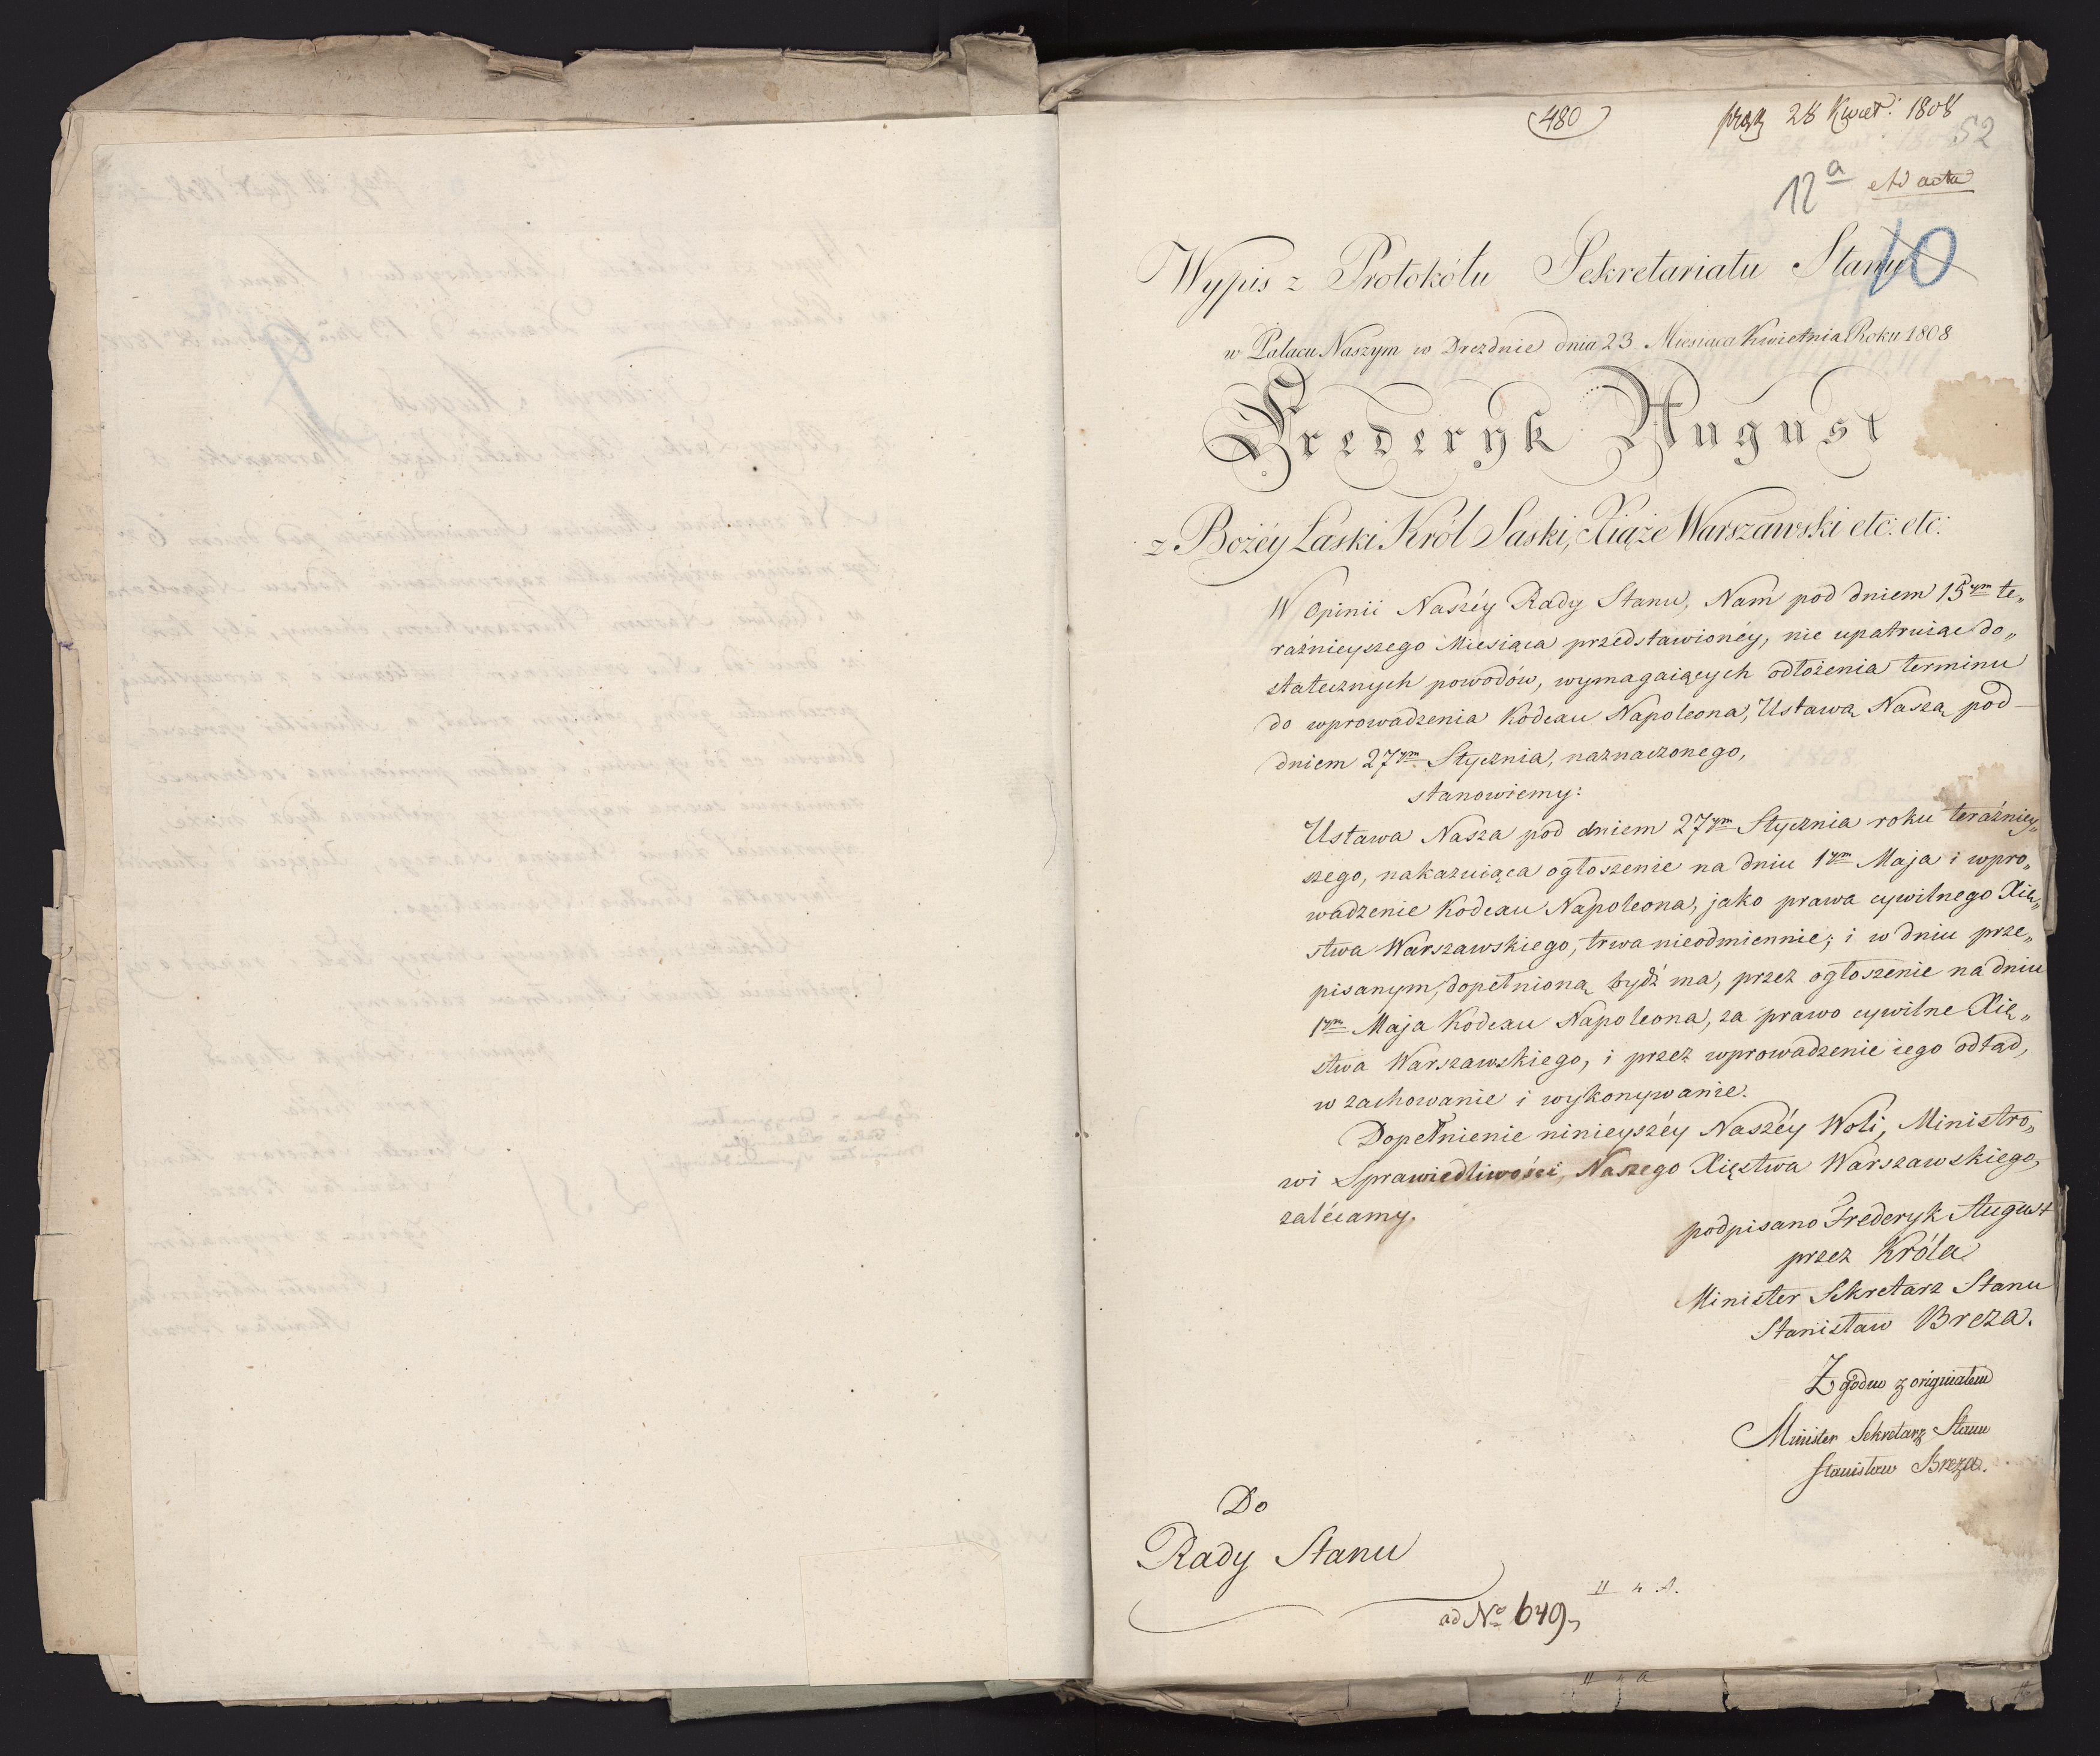 480
praes 28 Kwiet: 1808
52
12 a
Ad acta
10
Wypis z Protokółu Sekretariatu Stanu
w Pałacu Naszym w Dreznie dnia 23 Miesiąca Kwietnia Roku 1808
Frederyk August
z Bożéy Łaski Król Saski, Xiąże Warszawski etc: etc:
W Opinii Naszéy Rady Stanu, Nam pod dniem 15ym te„
raźnieyszego Miesiąca przedstawionéy, nie upatruiąc do„
statecznych powodów, wymagaiących odłożenia terminu
do wprowadzenia Kodexu Napoleona, Ustawą Naszą pod
dniem 27ym Stycznia, naznaczonego,
stanowiemy:
Ustawa Nasza pod dniem 27ym Stycznia roku teraźniey„
szego, nakazuiąca ogłoszenie na dniu 1ym Maja i wpro„
wadzenie Kodexu Napoleona, jako prawa cywilnego Xię„
stwa Warszawskiego, trwa nieodmiennie; i w dniu prze„
pisanym, dopełnioną bydź ma, przez ogłoszenie na dniu
1ym Maja Kodexu Napoleona, za prawo cywilne Xię„
stwa Warszawskiego, i przez wprowadzenie iego odtąd,
w zachowanie i wykonywanie.
Dopełnienie ninieyszéy Naszéy Woli, Ministro„
wi Sprawiedliwości, Naszego Xięstwa Warszawskiego,
zalécamy.
podpisano Frederyk August
przez Króla
Minister Sekretarz Stanu
Stanisław Breza.
Zgodno z originałem
Minister Sekretarz Stanu
Stanisław Breza.
Do
Rady Stanu
ad No 649
II 4 A.
II 4 a